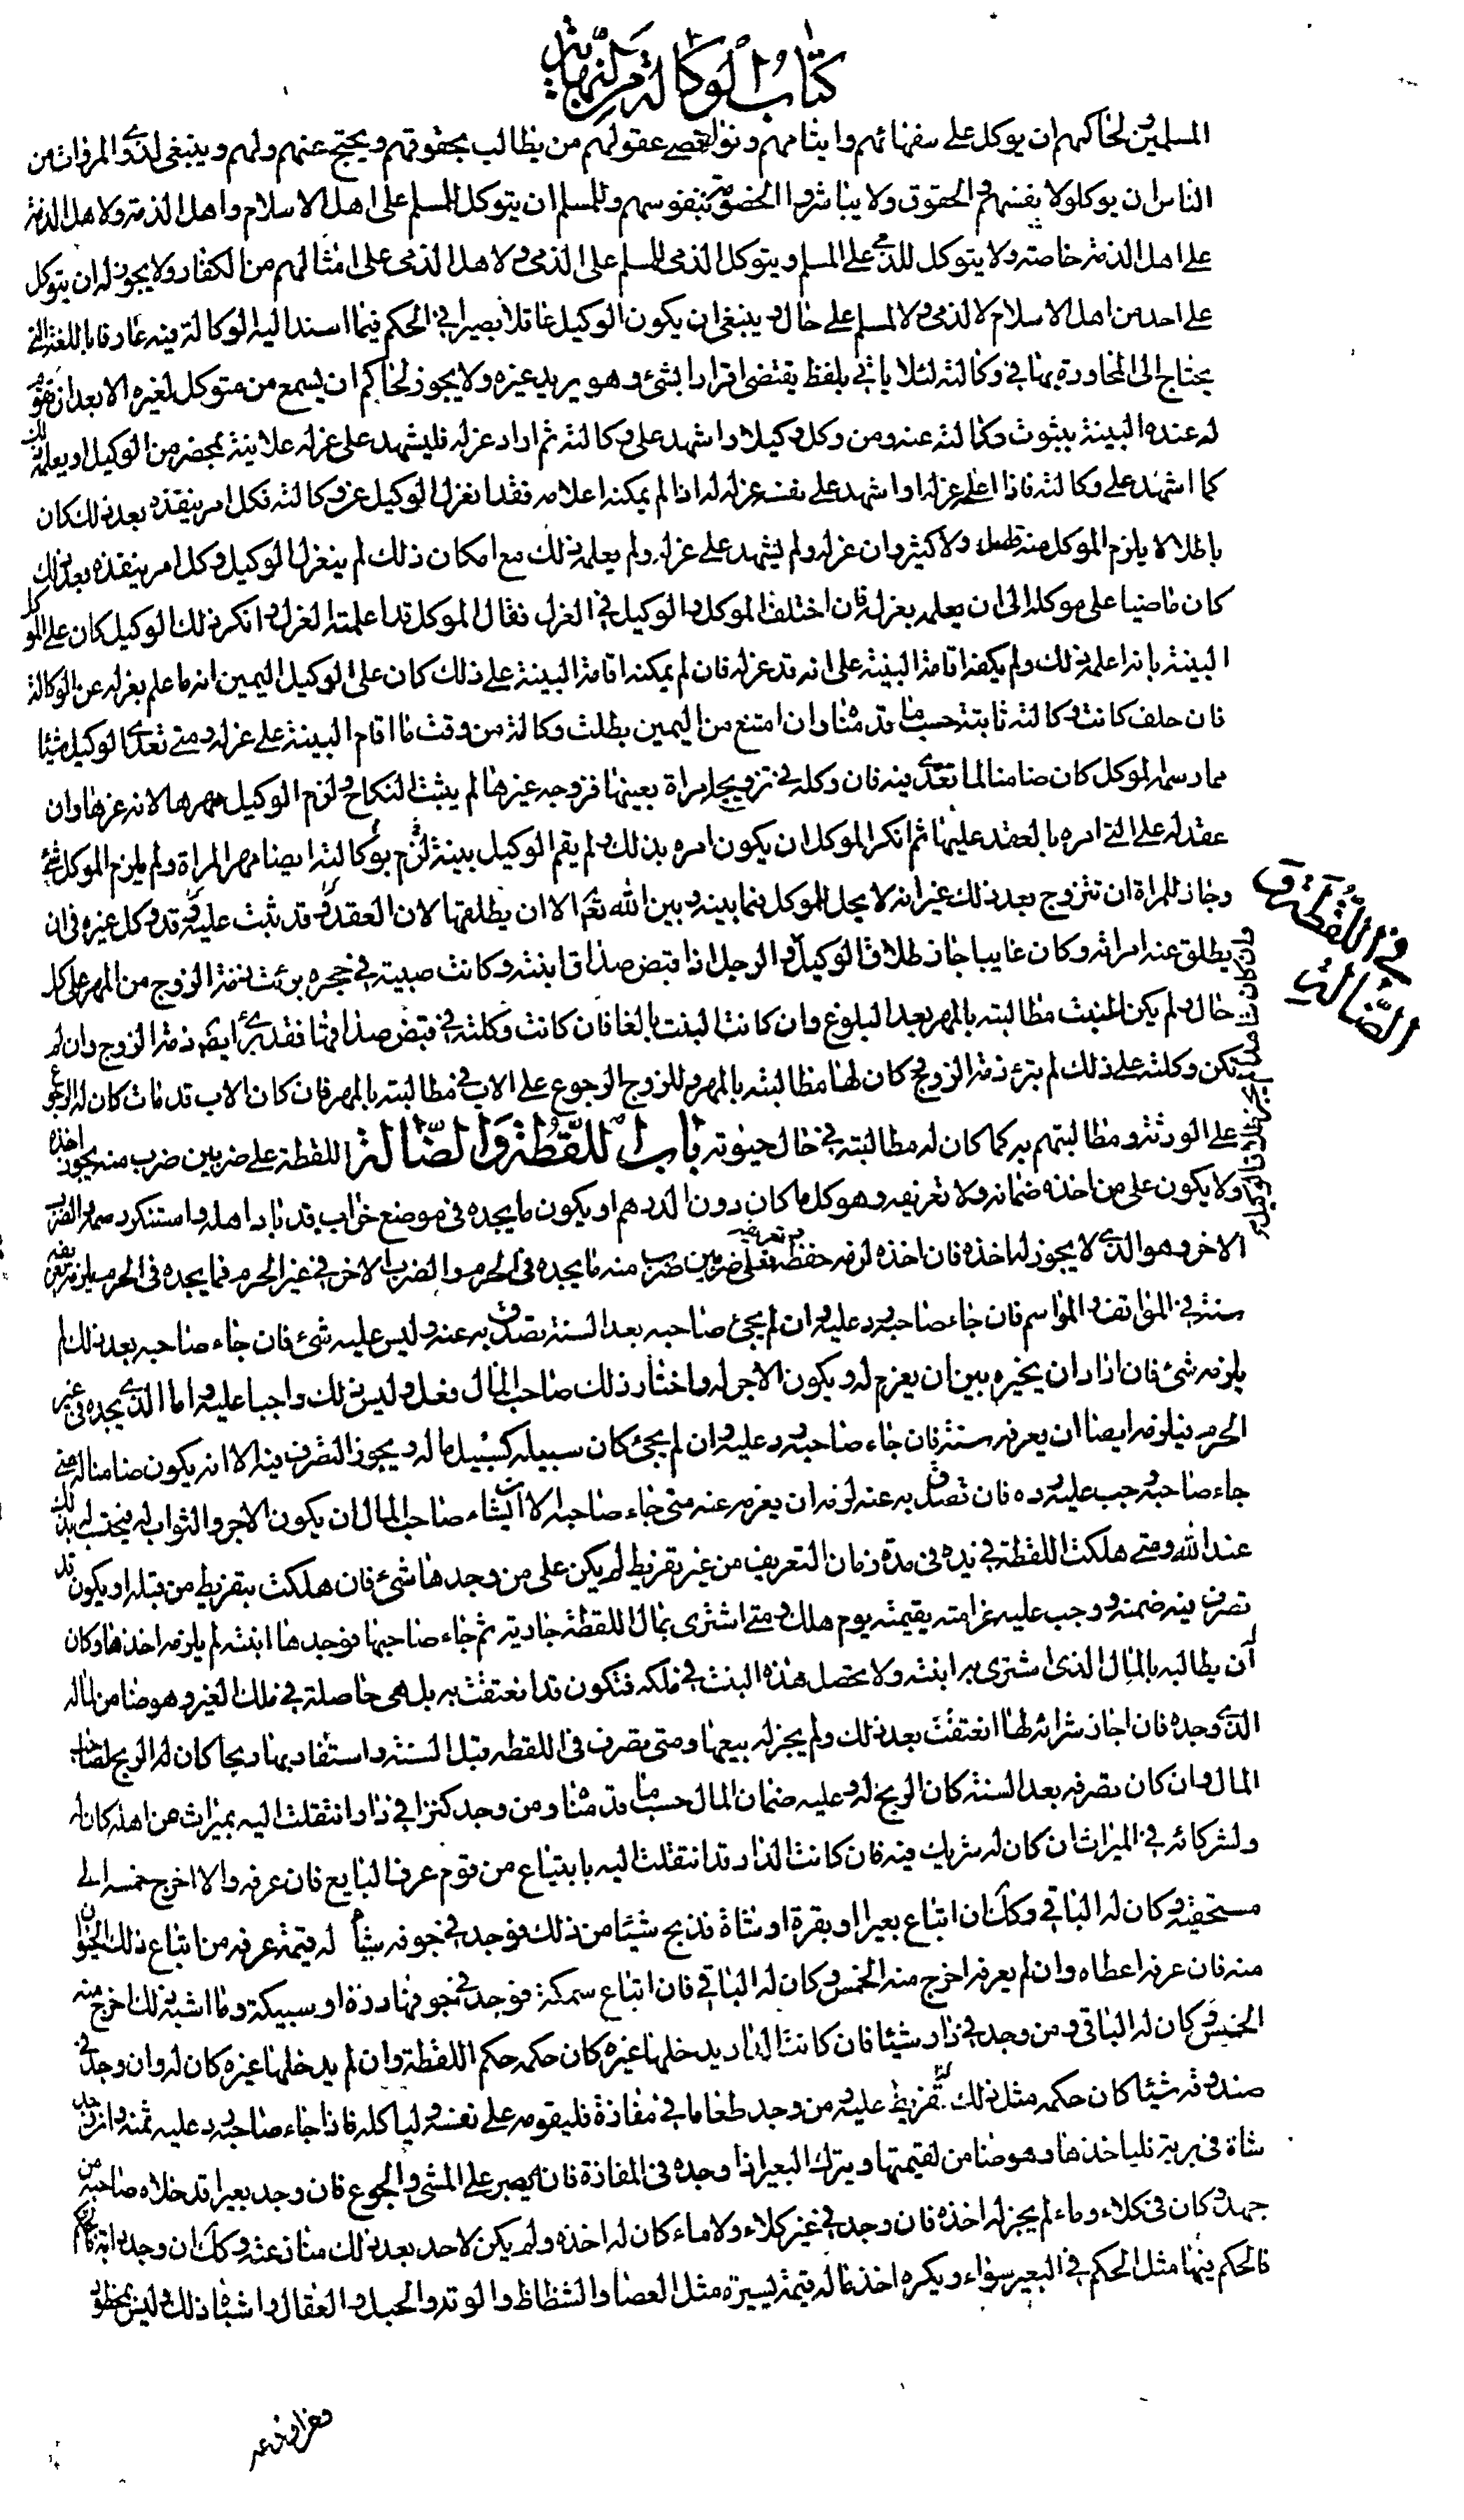 كتاب الوكالة من النهاية
المسلمين لحاكمهم ان يوكل على سفهائهم وايتامهم ونواقصى عقولهم من يطالب بحقوقهم ويحتج عنهم ولهم وينبغى لذوى المروات من
الناس ان يوكلوا لانفسهم فى الحقوق ولا يباشروا الخصومة بنفوسهم وللمسلم ان يتوكل للمسلم على اهل الاسلام واهل الذمة ولاهل الذمة
على اهل الذمة خاصة ولا يتوكل للذمى على المسلم ويتوكل الذمى للمسلم على الذمى ولاهل الذمى على امثالهم من الكفار ولا يجوز له ان يتوكل
على احد من اهل الاسلام لا لذمى ولا لمسلم على حال وينبغى ان يكون الوكيل عاقلا بصيرا فى الحكم فيما اسند اليه الوكالة فيه عارفا باللغة التى
يحتاج الى المحاورة بها فى وكالته لئلا ياتى بلفظ يقتضى اقرارا بشئ وهو يريد غيره ولا يجوز لحاكم ان يسمع من متوكل لغيره الا بعد ان تقوم
له عنده البينة بثبوت وكالته عنه ومن وكل وكيلا واشهد على وكالته ثم اراد عزله فليشهد على عزله علانية بمحضر من الوكيل او يعلمه ذلك
كما اشهد على وكالته فاذا اعلمه عزله او اشهد على نفسه عزله له اذا لم يمكنه اعلامه فقد انعزل الوكيل عن وكالته فكل امر ينفذه بعد ذلك كان
باطلا لا يلزم الموكل منه قليل ولا كثير وان عزله ولم يشهد على عزله ولم يعلمه ذلك مع امكان ذلك لم ينعزل الوكيل وكل امر ينفذه بعد ذلك
كان ماضيا على موكله الى ان يعلمه بعزله فان اختلف الموكل والوكيل فى العزل فقال الموكل قد اعلمته العزل وانكر ذلك الوكيل كان على الموكل
البينة بانه اعلمه ذلك ولم يكفه اقامة البينة على انه قد عزله فان لم يمكنه اقامة البينة على ذلك كان على الوكيل اليمين انه ما علم بعزله عن الوكالة
فان حلف كانت وكالته ثابتة حسب ما قدمناه وان امتنع من اليمين بطلت وكالته من وقت ما اقام البينة على عزله ومتى تعدى الوكيل شيئا
مما رسمه الموكل كان ضامنا لما تعدى فيه فان وكله فى تزويجه امراة بعينها فزوجه غيرها لم يثبت النكاح ولزم الوكيل مهرها لانه غرها وان
عقد له على التى امره بالعقد عليها ثم انكر الموكل ان يكون امره بذلك ولم يقم الوكيل بينة بوكالته لزمه ايضا مهر المراة ولم يلزم الموكل شئ
وجاز للمراة ان تتزوج بعد ذلك غير انه لا يحل للموكل فيما بينه وبين الله تعالى الا ان يطلقها لان العقد قد ثبت عليه ومن وكل غيره فى ان
يطلق عنه امراته وكان غايبا جاز طلاق الوكيل والرجل اذا قبض صداق ابنته وكانت صبية فى حجره برئت ذمة الزوج من المهر على كل
حال ولم يكن للبنت مطالبته بالمهر بعد البلوغ وان كانت البنت بالغا فان كانت وكلته فى قبض صداقها فقد برئ ايضا ذمة الزوج وان لم
تكن وكلته على ذلك لم تبرئ ذمة الزوج وكان لها مطالبته بالمهر وللزوج الرجوع على الاب فى مطالبته بالمهر فان كان الاب قد مات كان له الرجوع
على الورثة ومطالبتهم به كما كان له مطالبته فى حال حيوته باب اللقطة والضالة اللقطة على ضربين ضرب منه يجوز اخذه
ولا يكون على من اخذه ضمانه ولا تعريفه وهو كل ما كان دون الدرهم او يكون ما يجده فى موضع خراب قد باد اهله واستنكر رسمه والضرب
الاخر وهو الذى لا يجوز له اخذه فان اخذه لزمه حفظه وتعريفه فعلى ضربين ضرب منه ما يجده فى الحرم والضرب الاخر فى غير الحرم فما يجده فى الحرم يلزمه تعريفه
سنة فى المواقف والمواسم فان جاء صاحبه رد عليه وان لم يجئ صاحبه بعد السنة تصدق به عنه وليس عليه شئ فان جاء صاحبه بعد ذلك لم
يلزمه شئ فان اراد ان يخيره بين ان يغرم له ويكون الاجر له واختار ذلك صاحب المال فعل وليس ذلك واجبا عليه واما الذى يجده فى غير
الحرم فيلزمه ايضا ان يعرفه سنة فان جاء صاحبه رد عليه وان لم يجئ كان سبيله كسبيل ماله ويجوز التصرف فيه الا انه يكون ضامنا له متى
جاء صاحبه وجب عليه رده فان تصدق به عنه لزمه ان يغرمه عنه متى جاء صاحبه الا ان يشاء صاحب المال ان يكون الاجر والثواب له فيحتسب له بذلك
عند الله ومتى هلكت اللقطة فى يده فى مدة زمان التعريف من غير تفريط لم يكن على من وجدها شئ فان هلكت بتفريط من قبله او يكون قد
تصرف فيه ضمنه ووجب عليه غرامته بقيمته يوم هلك ومتى اشترى بمال اللقطة جارية ثم جاء صاحبها فوجدها ابنته لم يلزمه اخذها وكان
له ان يطالبه بالمال الذى اشترى به ابنته ولا يحصل هذه البنت فى ملكه فتكون قد انعتقت به بل هى حاصلة فى ملك الغير وهو ضامن لماله
الذى وجده فان اجاز شرائه لها انعتقت بعد ذلك ولم يجز له بيعها ومتى تصرف فى اللقطة قبل السنة واستفاد بها ربحا كان له الربح لصاحب
المال وان كان تصرفه بعد السنة كان الربح له وعليه ضمان المال حسب ما قدمناه ومن وجد كنزا فى دار انتقلت اليه بميراث من اهله كان له
ولشركائه فى الميراث ان كان له شريك فيه فان كانت الدار قد انتقلت اليه بابتياع من قوم عرف البايع فان عرفه والا اخرج خمسه الى
مستحقيه وكان له الباقى وكذلك ان ابتاع بعيرا او بقرة او شاة فذبح شيئا من ذلك فوجد فى جوفه شيئا له قيمة عرفه من ابتاع ذلك الحيوان
منه فان عرفه اعطاه وان لم يعرفه اخرج منه الخمس وكان له الباقى فان ابتاع سمكة فوجد فى جوفها درة او سبيكة وما اشبه ذلك اخرج منه
الخمس وكان له الباقى ومن وجد فى داره شيئا فان كانت الدار يدخلها غيره كان حكمه حكم اللقطة وان لم يدخلها غيره كان له وان وجد فى
صندوقه شيئا كان حكمه مثل ذلك عليه ومن وجد طعاما فى مفازة فليقومه على نفسه ولياكله فاذا جاء صاحبه رد عليه ثمنه وان وجد
شاة فى برية فلياخذها وهو ضامن لقيمتها ويترك البعير اذا وجده فى المفازة فانه يصبر على المشى والجوع فان وجد بعيرا قد خلاه صاحبه من
جهد وكان فى كلاء وماء لم يجز له اخذه فان وجد فى غير كلاء ولا ماء كان له اخذه ولم يكن لاحد بعد ذلك منازعته وكذلك ان وجد دابة
فالحكم فيها مثل الحكم فى البعير سواء ويكره اخذ ما له قيمة يسيرة مثل العصا والشظاظ والوتد والحبل والعقال واشباه ذلك وليس بمحظور
فى اللقطة و
الضالة